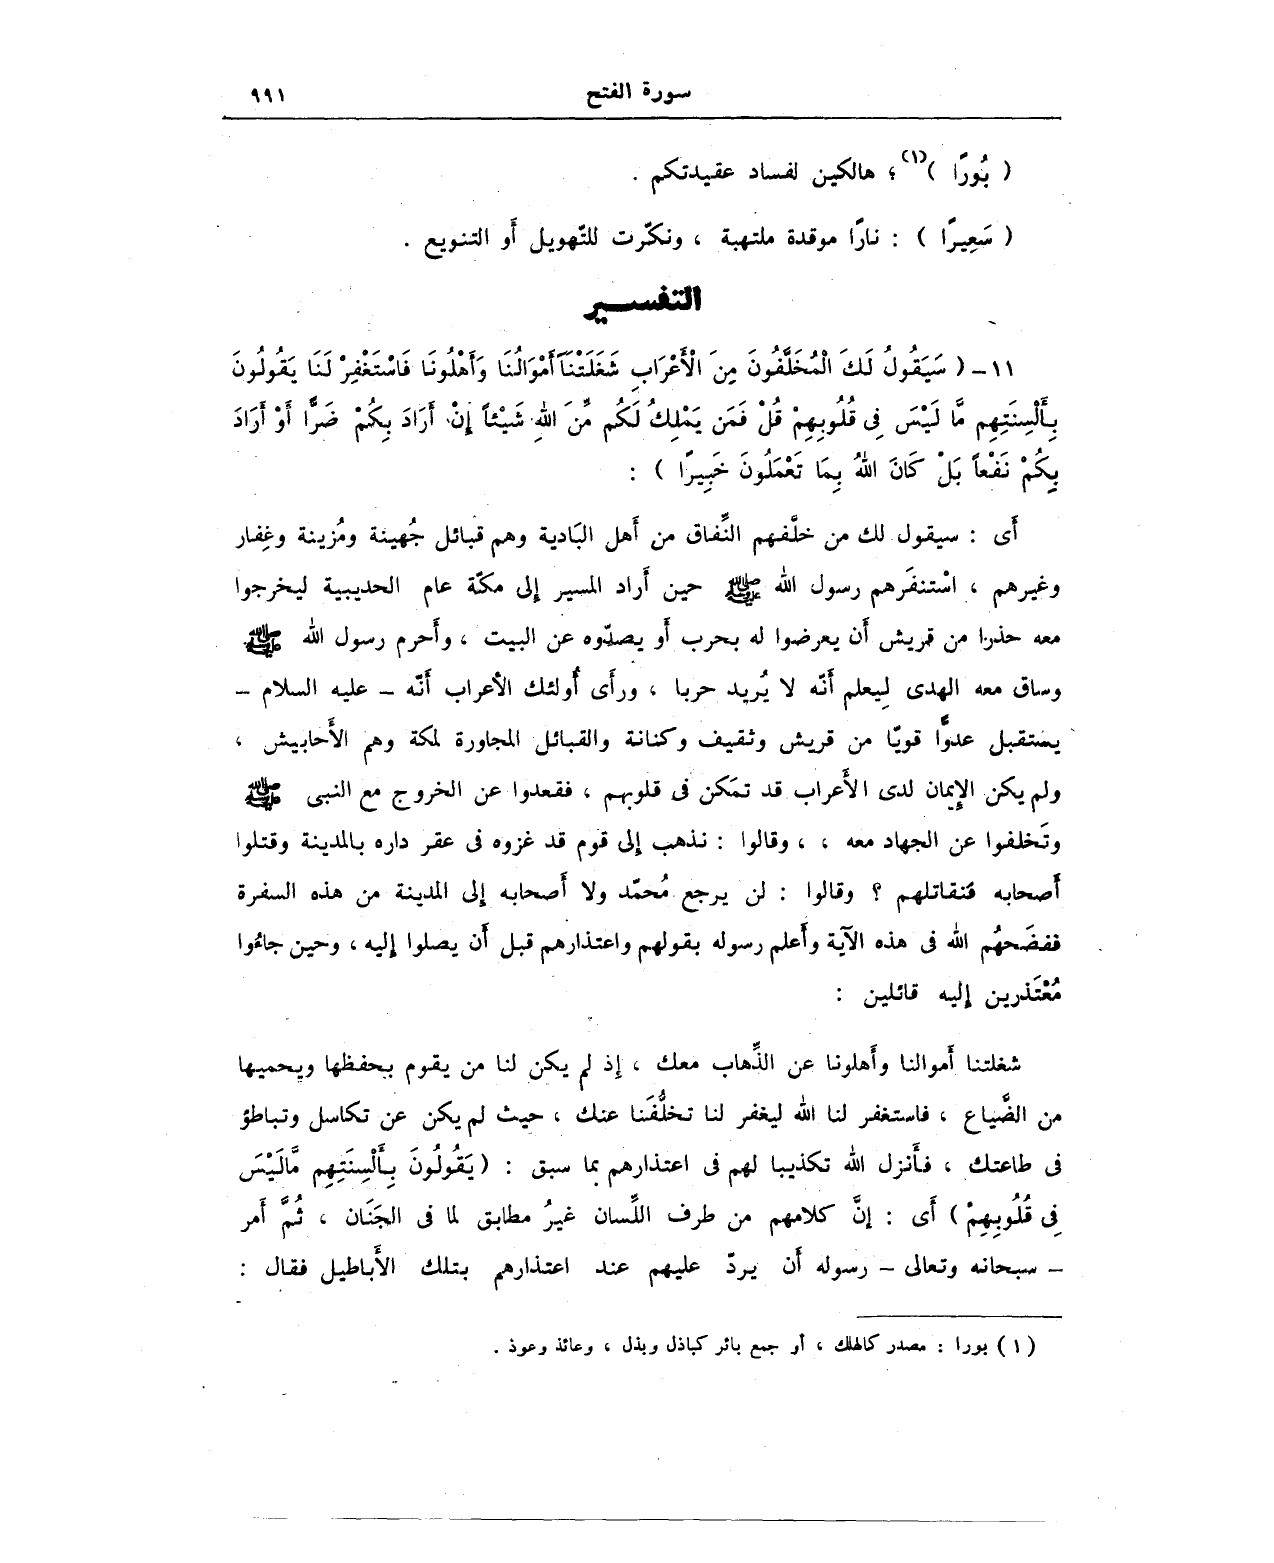 سورة الفتح ٩٩١
( بُورًا )(١) ؛ هالكين لفساد عقيدتكم .
( سَعِيرًا ) : نارًا موقدة ملتهبة ، ونكّرت للتّهويل أو التنويع .
التفسير
١١- ( سَيَقُولُ لَكَ الْمُخَلَّفُونَ مِنَ الْأَعْرَابِ شَغَلَتْنَآ أَمْوَالُنَا وَأَهْلُونَا فَاسْتَغْفِرْ لَنَا يَقُولُونَ
بِأَلْسِنَتِهِم مَّا لَيْسَ فِى قُلُوبِهِمْ قُلْ فَمَن يَمْلِكُ لَكُم مِّنَ اللهِ شَيْئاً إِنْ أَرَادَ بِكُمْ ضَرًّا أَوْ أَرَادَ
بِكُمْ نَفْعاً بَلْ كَانَ اللهُ بِمَا تَعْمَلُونَ خَبِيرًا ) :
أى : سيقول لك من خلَّفهم النِّفاق من أهل البَادية وهم قبائل جُهينة ومُزينة وغِفار
وغيرهم ، اسْتنفَرهم رسول الله ﷺ حين أراد المسير إلى مكّة عام الحديبية ليخرجوا
معه حذرا من قريش أن يعرضوا له بحرب أو يصدّوه عن البيت ، وأحرم رسول الله ﷺ
وساق معه الهدى لِيعلم أنّه لا يُريد حربا ، ورأى أُولئك الأعراب أنّه - عليه السلام -
يستقبل عدوًّا قويّا من قريش وثقيف وكنانة والقبائل المجاورة لمكة وهم الأحابيش ،
ولم يكن الإيمان لدى الأعراب قد تمَكن فى قلوبهم ، فقعدوا عن الخروج مع النبى ﷺ
وتَخلفوا عن الجهاد معه ، ، وقالوا : نذهب إلى قوم قد غزوه فى عقر داره بالمدينة وقتلوا
أصحابه فنقاتلهم ؟ وقالوا : لن يرجع مُحمّد ولا أصحابه إلى المدينة من هذه السفرة
ففضَحهُم الله فى هذه الآية وأعلم رسوله بقولهم واعتذارهم قبل أن يصلوا إليه ، وحين جاءوا
مُعْتَذرين إليه قائلين :
شغلتنا أموالنا وأهلونا عن الذِّهاب معك ، إذ لم يكن لنا من يقوم بحفظها ويحميها
من الضَّياع ، فاستغفر لنا الله ليغفر لنا تخلُّفَنا عنك ، حيث لم يكن عن تكاسل وتباطؤ
فى طاعتك ، فأنزل الله تكذيبا لهم فى اعتذارهم بما سبق : ( يَقُولُونَ بِأَلْسِنَتِهِم مَّالَيْسَ
فِى قُلُوبِهِمْ ) أى : إنَّ كلامهم من طرف اللِّسان غيرُ مطابق لما فى الجَنَان ، ثُمَّ أمر
- سبحانه وتعالى - رسوله أن يردّ عليهم عند اعتذارهم بتلك الأباطيل فقال :
( ١ ) بورا : مصدر كالهلك ، أو جمع بائر كباذل وبذل ، وعائذ وعوذ .